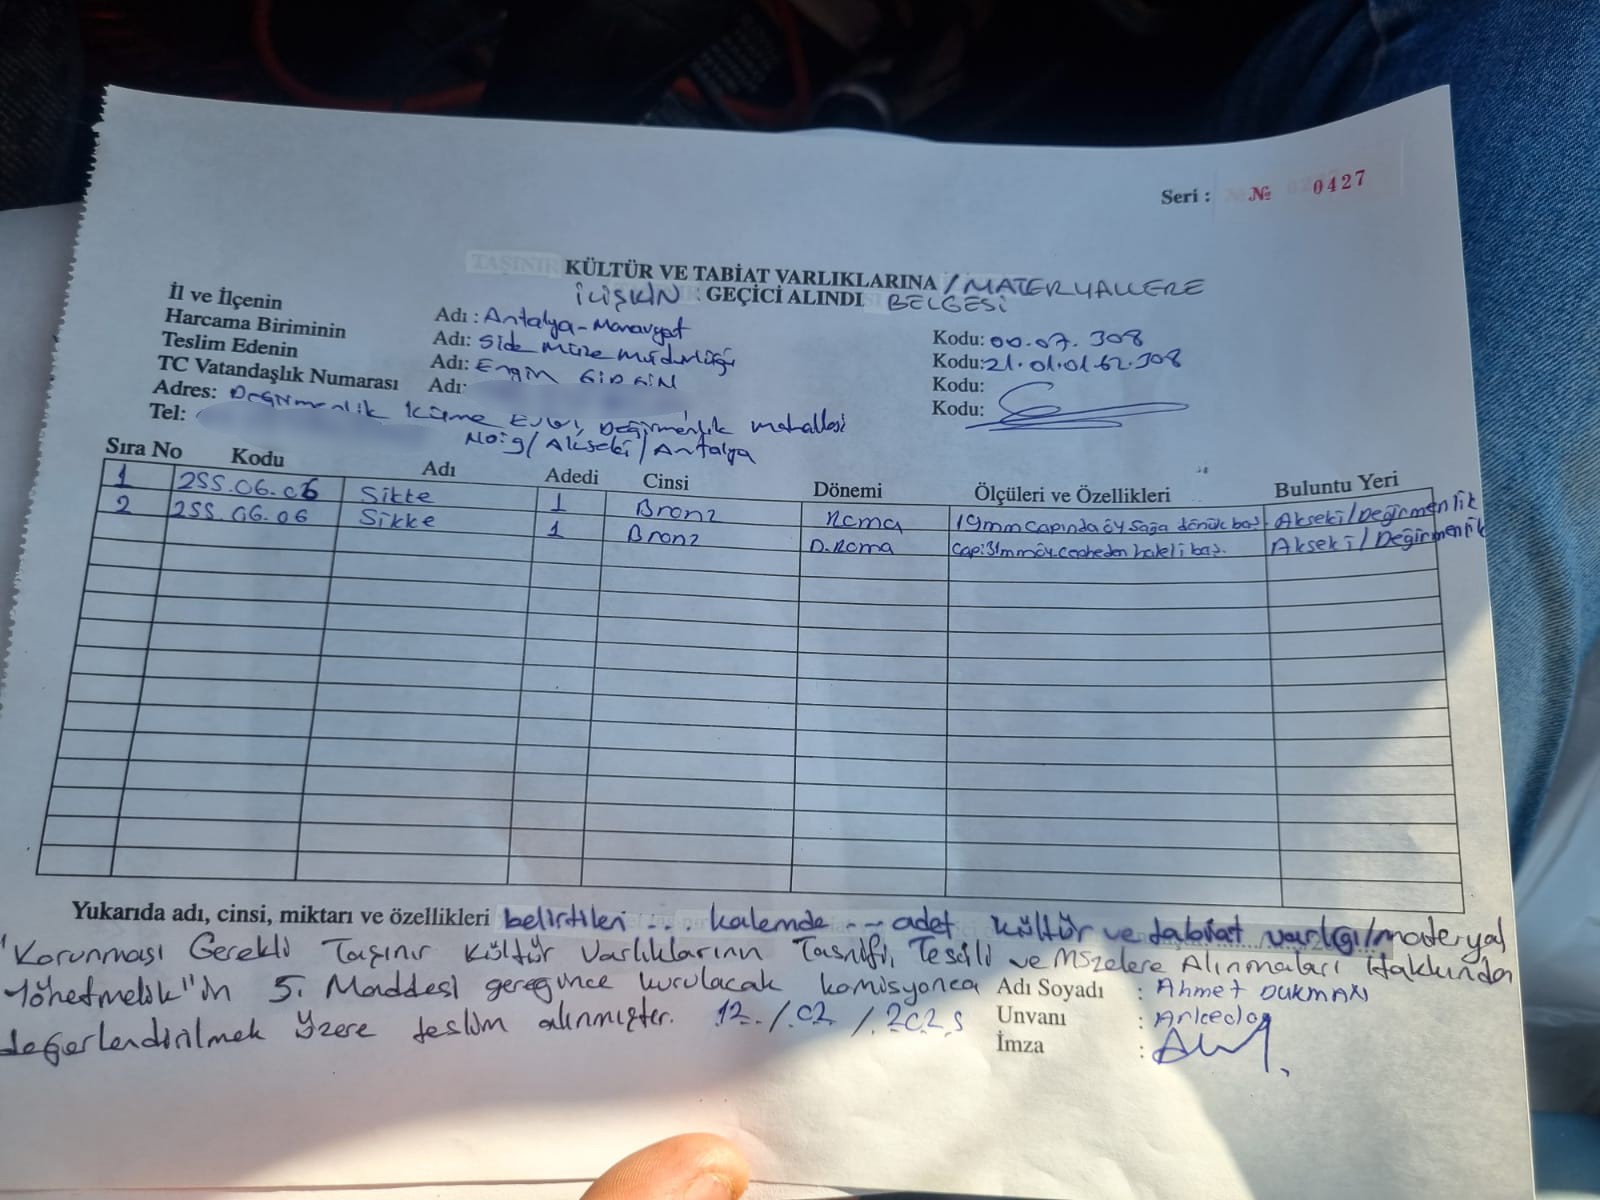 Seri : № 0427
TAŞINIR KÜLTÜR VE TABİAT VARLIKLARINA / MATERYALLERE
İLİŞKİN : GEÇİCİ ALINDI BELGESİ
İl ve İlçenin Adı : Antalya-Manavgat Kodu: 00.07.308
Harcama Biriminin Adı: Side Müze Müdürlüğü Kodu: 21.01.01.62.308
Teslim Edenin Adı: Engin Kodu:
TC Vatandaşlık Numarası Adı: Kodu:
Adres: Değirmenlik Küme Evleri, Değirmenlik mahallesi
Tel: No:9/Akseki/Antalya
Sıra No Kodu Adı Adedi Cinsi Dönemi Ölçüleri ve Özellikleri Buluntu Yeri
1 255.06.06 Sikke 1 Bronz Roma 19mm çapında öy sağa dönük baş. Akseki/Değirmenlik
2 255.06.06 Sikke 1 Bronz D.Roma Çapı:31mm öy. cepheden haleli baş. Akseki/Değirmenlik
Yukarıda adı, cinsi, miktarı ve özellikleri belirtilen ... kalemde ... adet kültür ve tabiat varlığı/materyal
"Korunması Gerekli Taşınır Kültür Varlıklarının Tasnifi, Tescili ve Müzelere Alınmaları Hakkında
Yönetmelik"in 5. Maddesi gereğince kurulacak komisyonca Adı Soyadı : Ahmet DUKMAN
değerlendirilmek üzere teslim alınmıştır. 12./02/2025 Unvanı : Arkeolog
İmza :